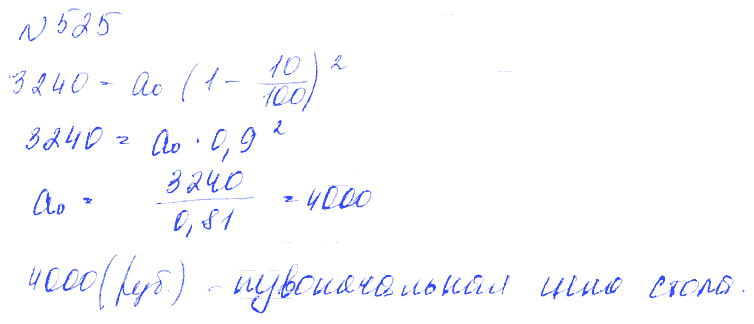 № 525
3240 = a₀ (1 - 10/100)²
3240 = a₀ · 0,9²
a₀ = 3240/0,81 = 4000
4000 (руб.) - первоначальная цена стола.